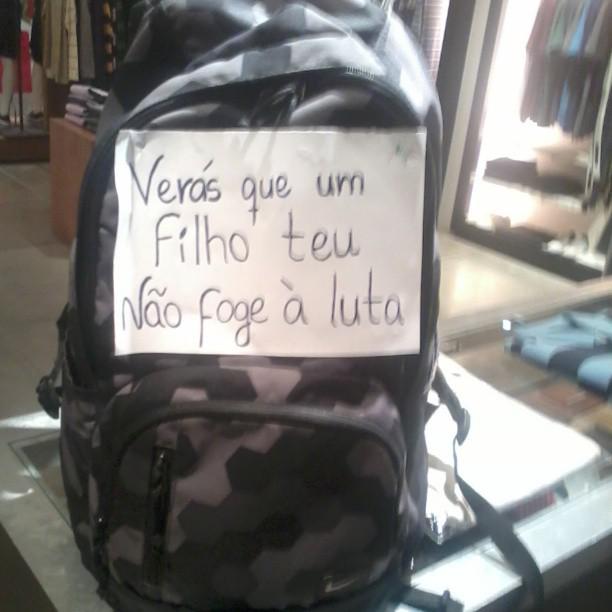 Verás que um
Filho teu
Não foge à luta